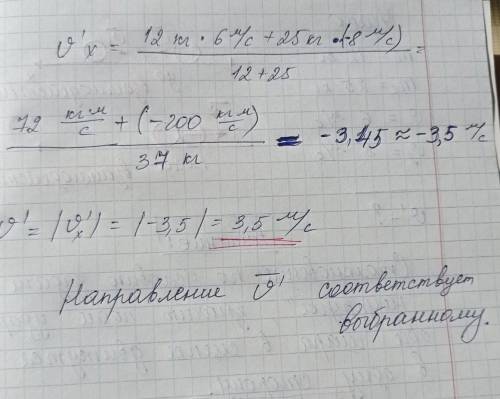 ϑ'x = (12 кг · 6 м/с + 25 кг · (-8 м/с)) / (12 + 25) =
(72 кг·м/с + (-200 кг·м/с)) / 37 кг = -3,45 ≈ -3,5 м/с
ϑ' = |ϑ'x| = |-3,5| = 3,5 м/с
Направление ϑ̅' соответствует
выбранному.